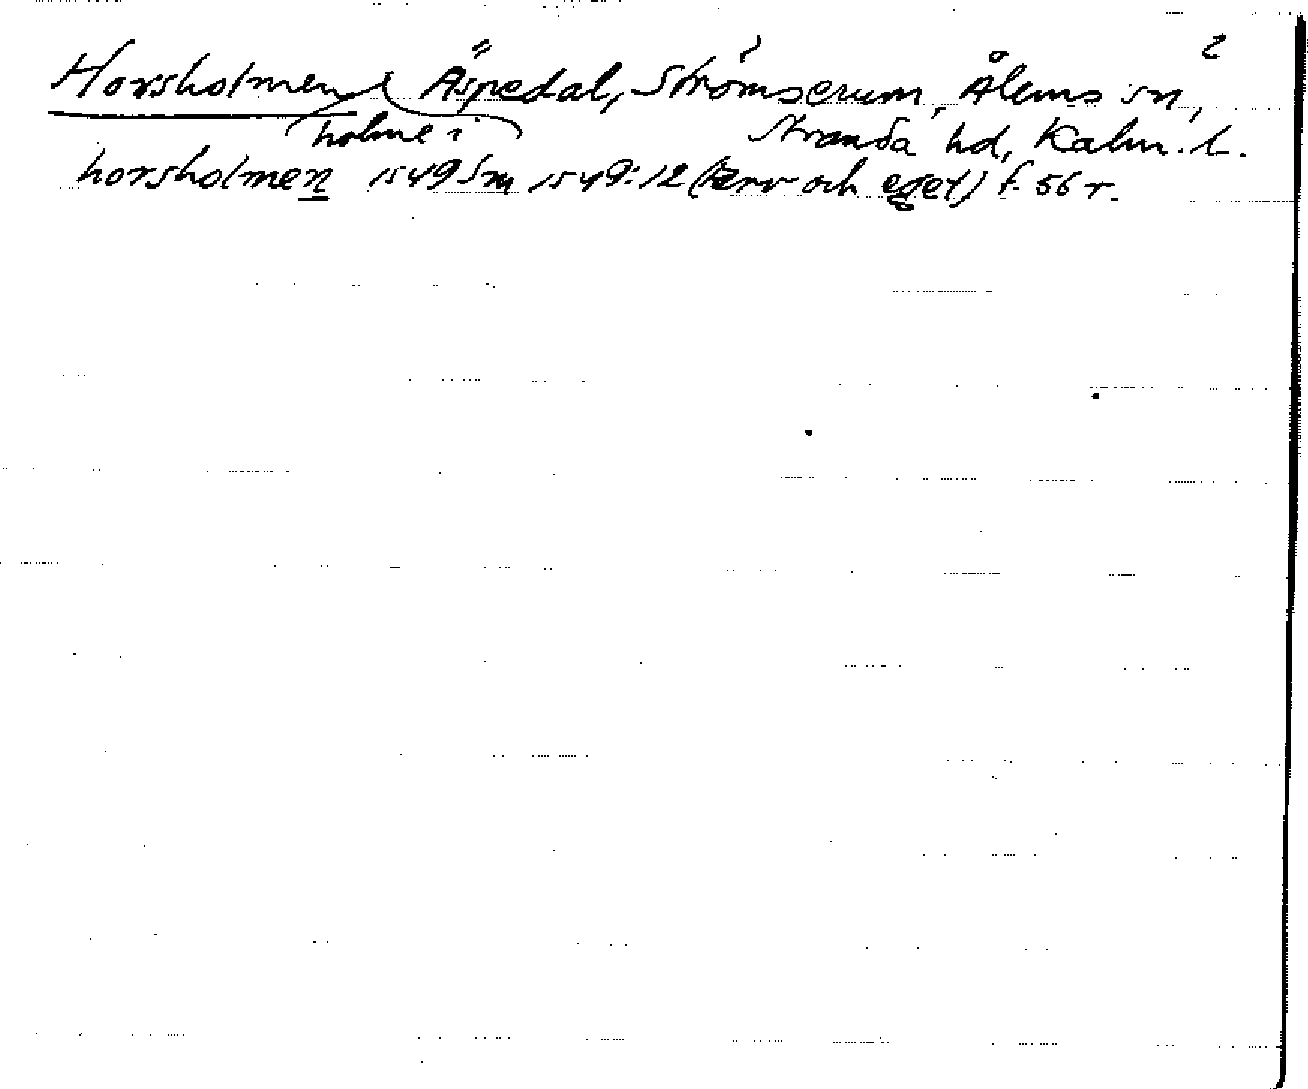 2
Horsholmen, Äspedal, Strömserum, Ålems sn,
holme i Stranda hd, Kalm. l.
horsholmen 1549 Sm 1549:12 (arv och eget) f. 56 r.